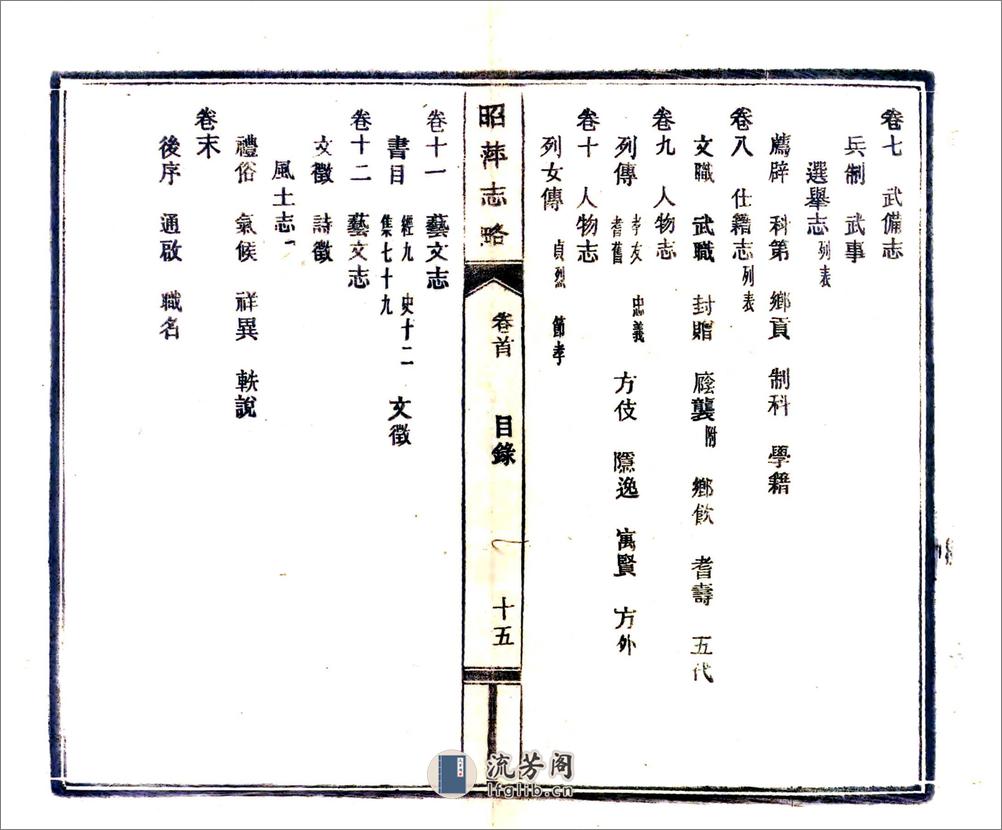 卷七 武備志
兵制 武事
選舉志列表
薦辟 科第 鄉貢 制科 學籍
卷八 仕籍志列表
文職 武職 封贈 廕襲附 鄉飲 耆壽 五代
卷九 人物志
列傳 孝友 耆舊 忠義 方伎 隱逸 寓賢 方外
卷十 人物志
列女傳 貞烈 節孝
昭萍志略 卷首 目錄 十五
卷十一 藝文志
書目 經九 史十二 集七十九 文徵
卷十二 藝文志
文徵 詩徵
風土志
禮俗 氣候 祥異 軼說
卷末
後序 通啟 職名
流芳阁
lfglib.cn